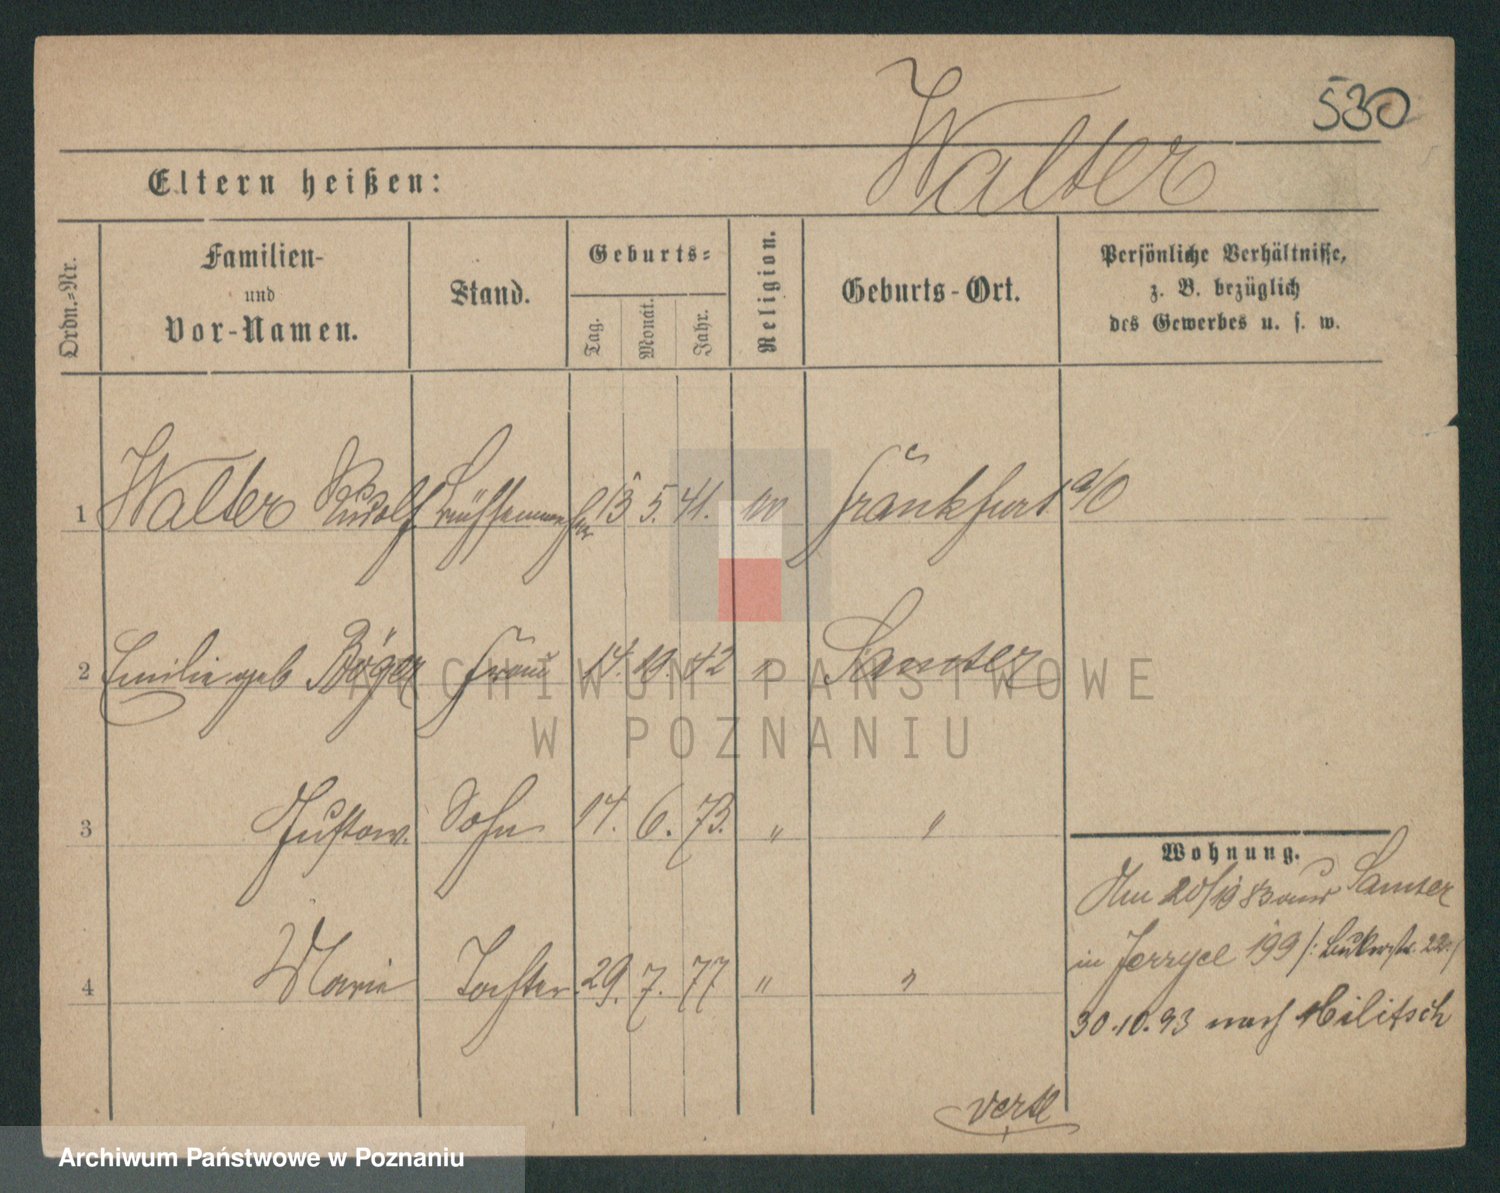 530
Walter
Eltern heißen:
Ordn.-Nr.
Familien-
und
Vor-Namen.
Stand.
Geburts-
Tag.
Monat.
Jahr.
Religion.
Geburts-Ort.
Persönliche Verhältnisse,
z. B. bezüglich
des Gewerbes u. s. w.
1 Walter Rudolf 13 5. 41. Frankfurt a/O
2 Emilie geb Böger Frau 14. 10. 42 " Samter
3 Gustav. Sohn 17. 6. 73. " "
4 Marie Tochter 29. 7. 77 " "
Wohnung.
Am 20/10 83 aus Samter
in Jerzyce 199 /: Bukerstr. 22 :/
30.10.93 nach Militsch
verte
ARCHIWUM PAŃSTWOWE
W POZNANIU
Archiwum Państwowe w Poznaniu